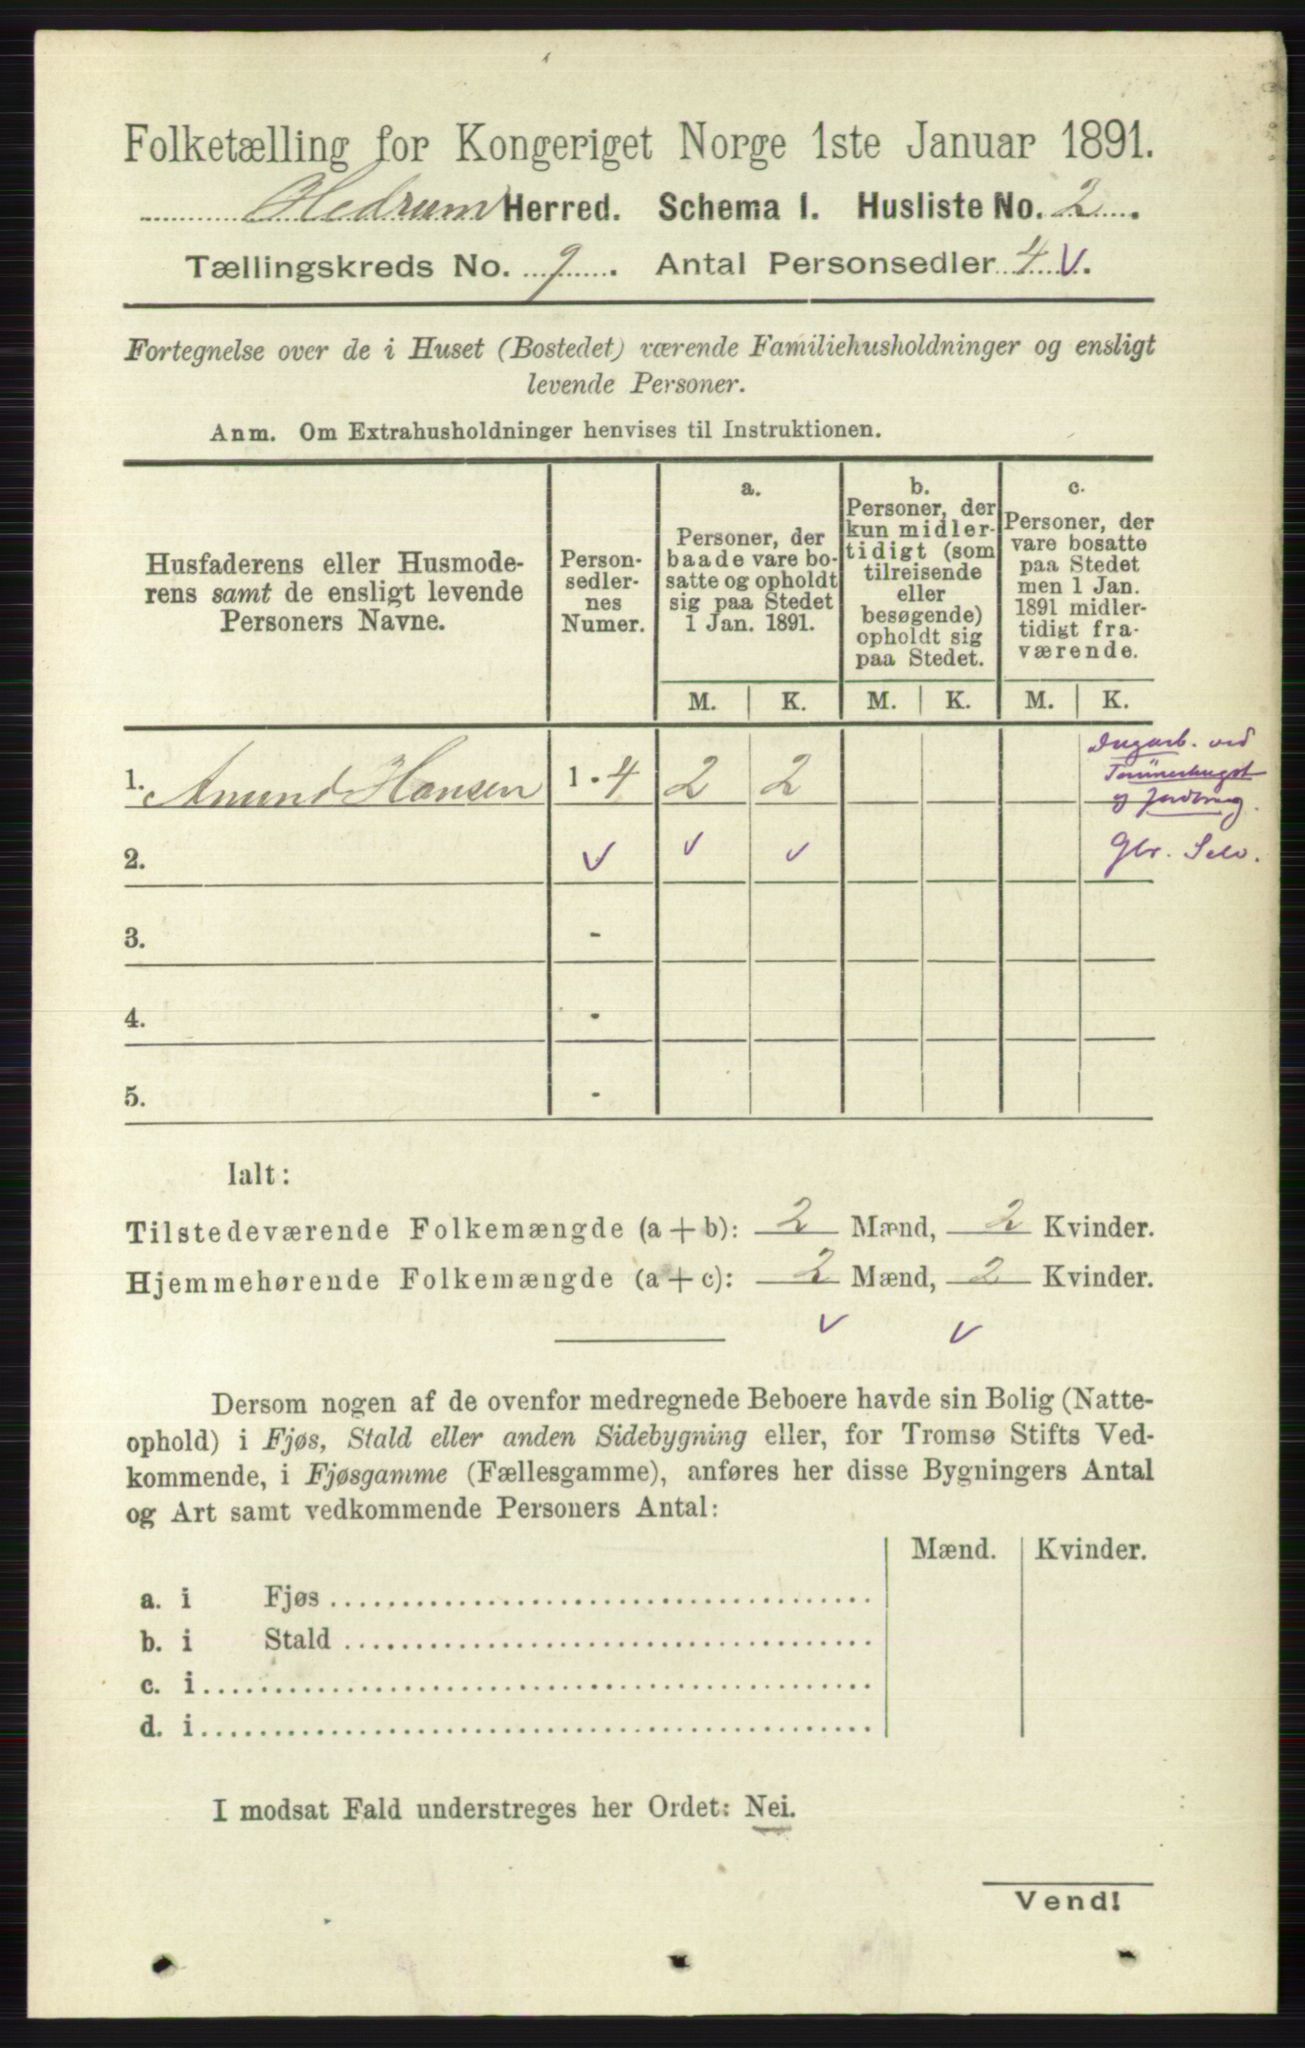 Folketælling for Kongeriget Norge 1ste Januar 1891.
Hedrum Herred. Schema I. Husliste No. 2.
Tællingskreds No. 9. Antal Personsedler 4 V.
Fortegnelse over de i Huset (Bostedet) værende Familiehusholdninger og ensligt
levende Personer.
Anm. Om Extrahusholdninger henvises til Instruktionen.
Husfaderens eller Husmode-
rens samt de ensligt levende
Personers Navne.
Person-
sedler-
nes
Numer.
a.
Personer, der
baade vare bo-
satte og opholdt
sig paa Stedet
1 Jan. 1891.
b.
Personer, der
kun midler-
tidigt (som
tilreisende
eller
besøgende)
opholdt sig
paa Stedet.
c.
Personer, der
vare bosatte
paa Stedet
men 1 Jan.
1891 midler-
tidigt fra-
værende.
M. K. M. K. M. K.
Dagarb. ved
Tømmerhugst
og Jordbrug.
1. Amund Hansen 1 - 4 2 2
2. V V V Gbr. Selv.
3. -
4. -
5. -
Ialt:
Tilstedeværende Folkemængde (a + b): 2 Mænd, 2 Kvinder.
Hjemmehørende Folkemængde (a + c): 2 Mænd, 2 Kvinder.
V V
Dersom nogen af de ovenfor medregnede Beboere havde sin Bolig (Natte-
ophold) i Fjøs, Stald eller anden Sidebygning eller, for Tromsø Stifts Ved-
kommende, i Fjøsgamme (Fællesgamme), anføres her disse Bygningers Antal
og Art samt vedkommende Personers Antal:
Mænd. Kvinder.
a. i Fjøs
b. i Stald
c. i
d. i
I modsat Fald understreges her Ordet: Nei.
Vend!